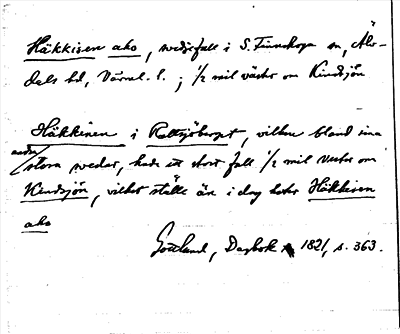 Häkkisen aho, svedjefall i S. Finnskoga sn, Älv-
dals hd, Värml. l.; 1/2 mil väster om Kindsjön
Häkkinen i Rattsjöberget, vilken bland sina
andra
stora svedjor, hade ett stort fall 1/2 mil vester om
Kindsjön, vilket ställe än i dag heter Häkkisen
aho
Gottlund, Dagbok 1821, s. 363.